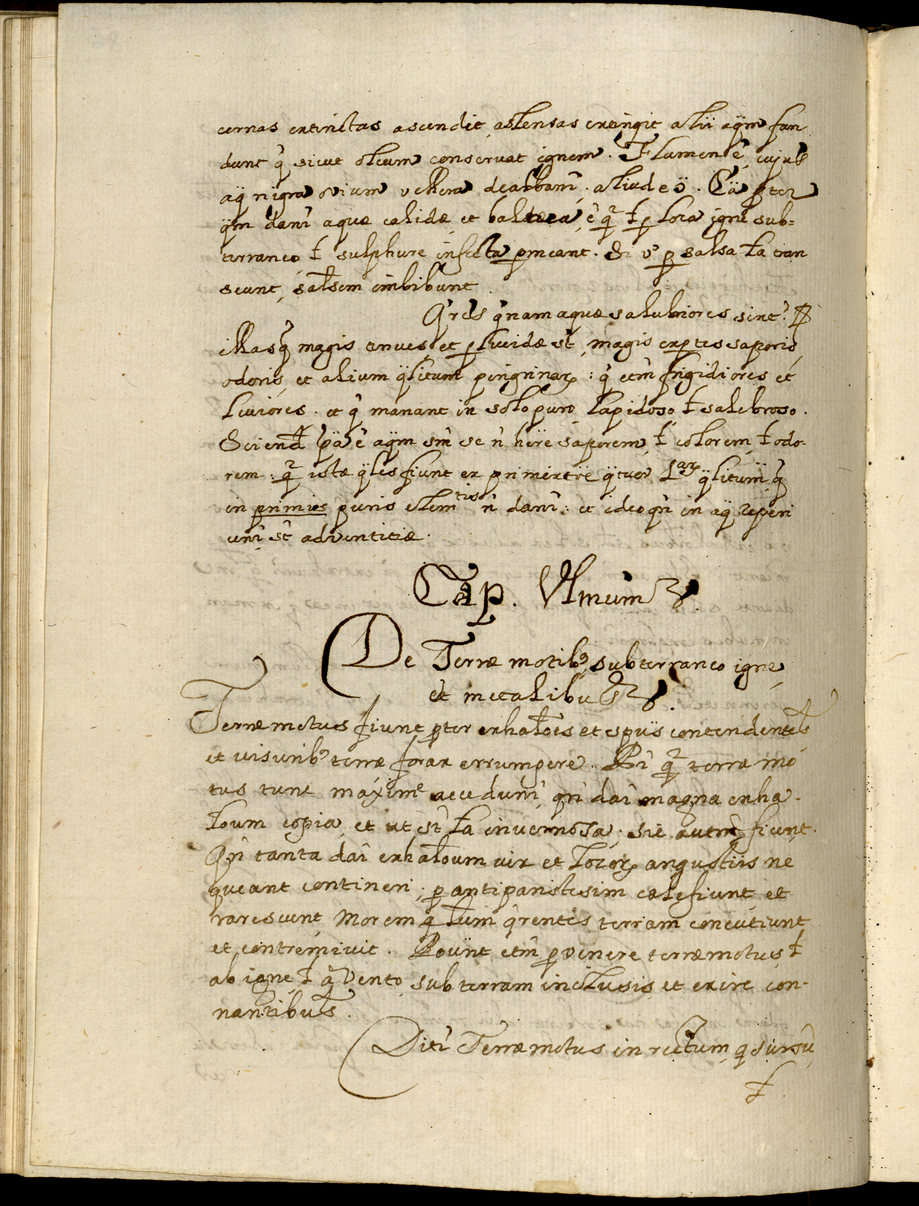 cernas extinctas ascendit, astensas extingit alii aq̃m fun
dunt q̃ sicut oleum conservat ignem. Flumen ẽ, cujus
aq̃ nigra ovium vellera dealbant̃. aliud eõ. Cã p̱ter
q̃m dant̃ aquæ calidæ et balnea, ẽ q̃ ƚ p̱ loca igni sub=
terraneo ƚ sulphure infecta p̱meant. Si v̊ p̱ salsa ƚa tran
seunt, salsem imbibunt.
Q̃res q̃nam aquæ salubriores sint?
illas q̃ magis tenues, et p̱lucidæ st̃, magis exp̱tes saporis
odoris, et alium q̃litum p̱egrinar̃: q̃ etm̃ frigidiores et
leviores. et q̃ manant in solo puro, lapidoso ƚ salebroso.
Sciend ẽ aq̃m sm̃ se ñ h̃ere saporem, ƚ colorem, ƚ odo-
rem: q̃ istæ q̃les fiunt ex p̱mixtne q̃tuor q̃litum, q̃
in primis puris elemtis ñ dant̃: et ideo qñ in aq̃ reperi
unt̃ st̃ adventitiæ.
Cap. Vlmum
De Terræ motibꝰ, subterraneo igne,
et metalibus.
Terræmotus fiunt p̱ter exhaƚoes et spus contendentes
et visuribꝰ terræ foras errumpere. Rõ q̃ terræ mo
tus tunt maxime accidunt̃, qñ dat̃ magna exha-
ƚoum copia, et ut st̃ ƚa invernosa. sic autem fiunt.
Qñ tanta dat̃ exhaƚoum vix et locor̃ angustiis ne
queant contineri; p̱ antiparistesim calefiunt et
rarescunt, Morem q̃ ƚum q̃rentes terram concutiunt
et contremivit. Põunt etm̃ p̱venire terræmotus ƚ
ab igne ƚ a vento subterram inclusis et exire con-
nantibus.
Dict̃ Terræmotus in rectum, q̃ sursũ
ƚ